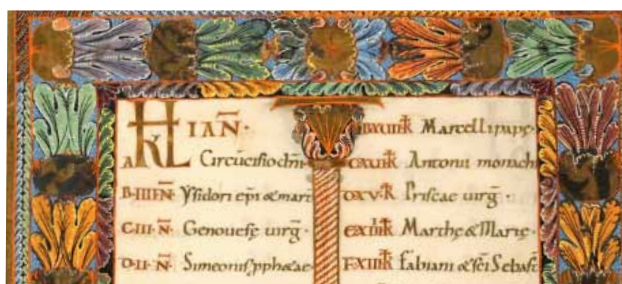 KL IAN̄·
A Circūcisio dn̄i
B·IIII·N̄· Ysidori ep̄i & mart
C·III·N̄· Genouefe uirḡ·
D·II·N̄· Simeonis pphetae
Marcelli pape·
Antonii monachi
Priscae uirḡ·
Marthę & Marię·
Fabiani & sc̄i Sebast